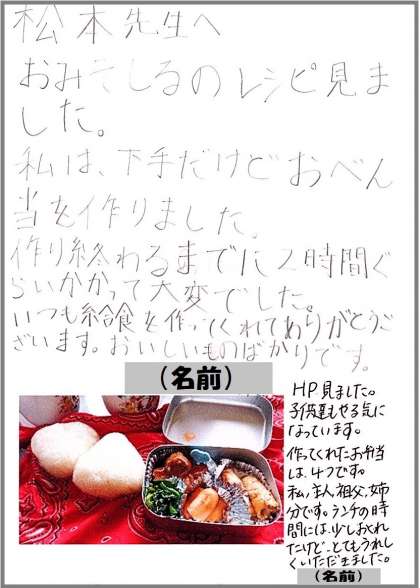 松本先生へ
おみそしるのレシピ見ま
した。
私は、下手だけどおべん
当を作りました。
作り終わるまでに2時間ぐ
らいかかって大変でした。
いつも給食を作ってくれてありがとうご
ざいます。おいしいものばかりです。
（名前）
HP見ました。
子供達もやる気に
なっています。
作ってくれたお弁当
は、4つです。
私、主人、祖父、姉
分です。ランチの時
間には、少しおくれ
たけど、とてもうれし
くいただきました。
（名前）